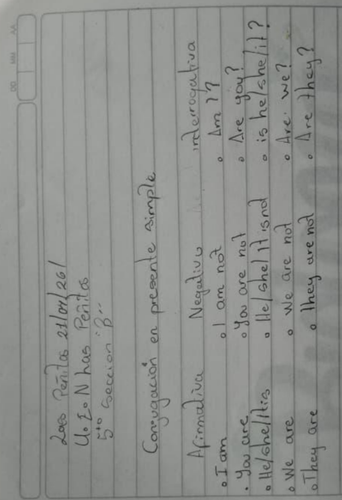 Las Peñitas 21/04/26/
U.E.N has Peñitas
5to Sección "B"
Conjugación en presente simple
Afirmativa Negativa interrogativa
• I am • I am not • Am I?
• You are • You are not • Are you?
• He/she/it is • He/she/It is not • is he/she/it?
• We are • We are not • Are we?
• They are • They are not • Are they?